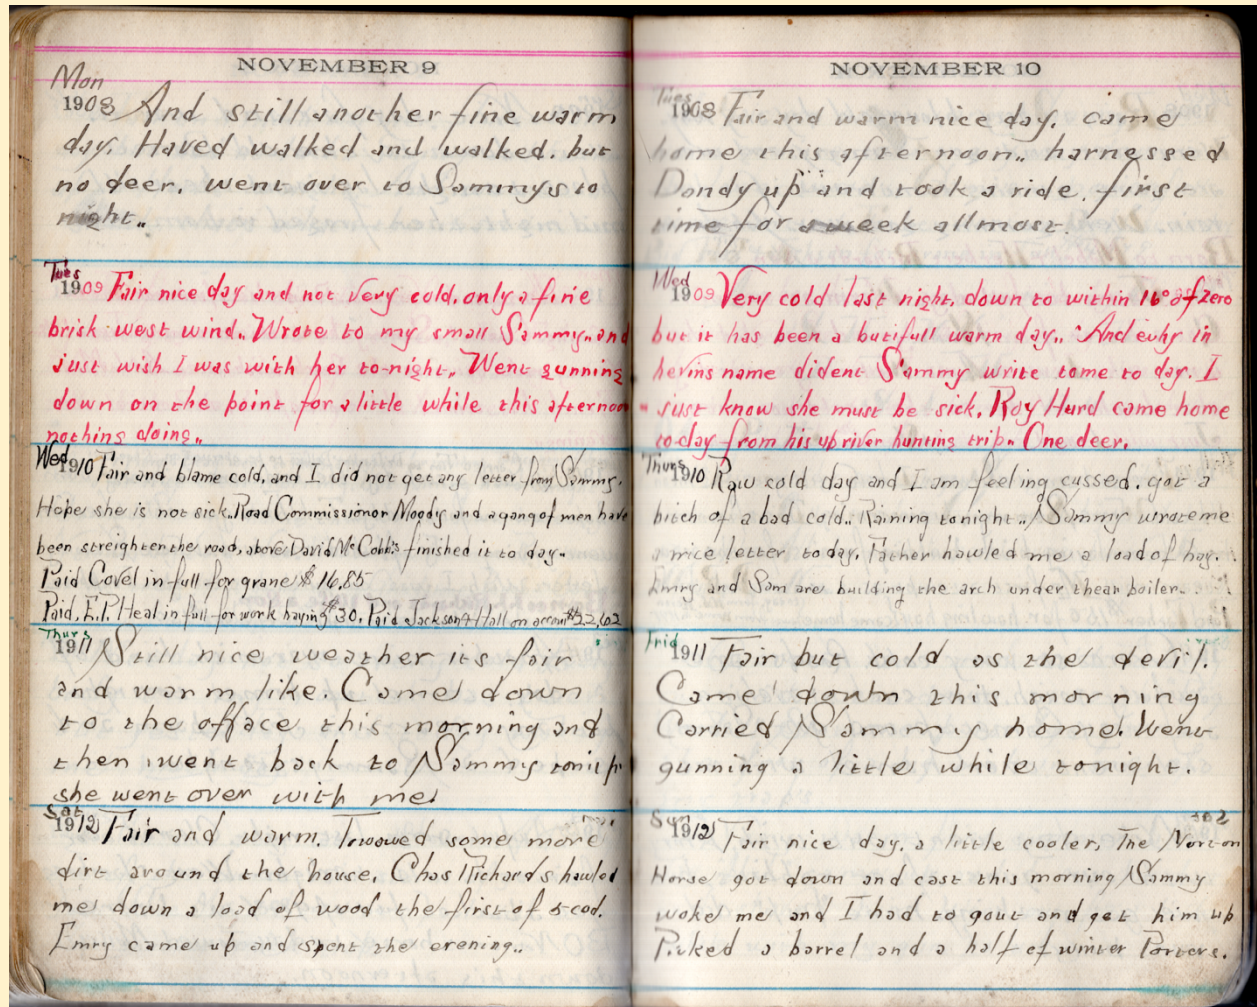 NOVEMBER 9
Mon
1908 And still another fine warm
day. Haved walked and walked. but
no deer. went over to Sammys to
night..
Tues
1909 Fair nice day and not very cold. only a fine
brisk west wind.. Wrote to my small Sammy.. and
just wish I was with her to-night.. Went gunning
down on the point for a little while this afternoon
nothing doing..
Wed
1910 Fair and blame cold, and I did not get any letter from Sammy.
Hope she is not sick.. Road Commissionor Moody and a gang of men have
been streighten the road, above David McCobb's finished it to day..
Paid Covel in full for grane $16.85
Paid, E.P. Heal in full for work haying $30. Paid Jackson & Hall on account $22,62
Thurs
1911 Still nice weather its fair
and warm like. Came down
to the offace this morning and
then went back to Sammy
she went over with me.
Sat
1912 Fair and warm. Towed some more
dirt around the house. Chas Richards hawled
me down a load of wood the first of 5 cod.
Emry came up and spent the evening..
NOVEMBER 10
Tues
1908 Fair and warm nice day. came
home this afternoon.. harnessed
Dandy up and took a ride. first
time for a week allmost.
Wed
1909 Very cold last night, down to within 16° of zero
but it has been a butifull warm day.. And in
hevins name dident Sammy write tome to day. I
just know she must be sick. Roy Hurd came home
to-day from his up river hunting trip.. One deer.
Thurs
1910 Raw cold day and I am feeling cussed. got a
bitch of a bad cold.. Raining tonight.. Sammy wrote me
a nice letter today. Father hawled me a load of hay.
Emry and Sam are building the arch under thear boiler..
Frid
1911 Fair but cold as the devil.
Came down this morning
Carried Sammy home. Went
gunning a little while tonight.
Sun
1912 Fair nice day. a little cooler, The Norton
Horse got down and cast this morning Sammy
woke me and I had to gout and get him up
Picked a barrel and a half of winter Porters.